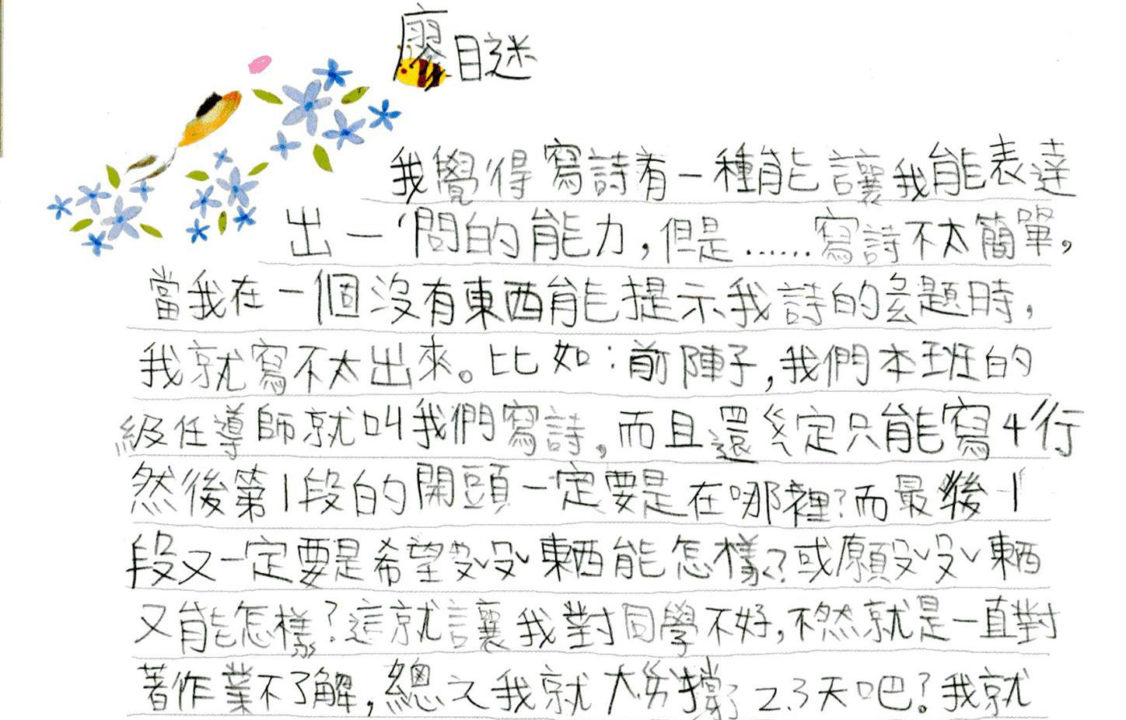 廖目謎
我覺得寫詩有一種能讓我能表達
出一問的能力,但是……寫詩不太簡單,
當我在一個沒有東西能提示我詩的主題時,
我就寫不太出來。比如:前陣子,我們本班的
級任導師就叫我們寫詩,而且還定只能寫4行
然後第1段的開頭一定要是在哪裡?而最後1
段又一定要是希望沒沒東西能怎樣?或願沒沒東西
又能怎樣?這就讓我對同學不好,不然就是一直對
著作業不了解,總之我就大撐了2.3天吧?我就